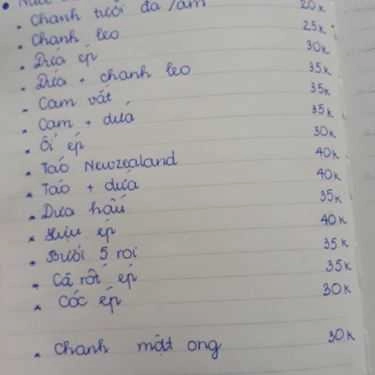 Chanh tươi đá / ấm 20k
Chanh leo 25k
Dứa ép 30k
Dứa + chanh leo 35k
Cam vắt 35k
Cam + dứa 35k
Ổi ép 30k
Táo Newzealand 40k
Táo + dứa 40k
Dưa hấu 35k
Lựu ép 40k
Bưởi 5 roi 35k
Cà rốt ép 35k
Cóc ép 30k
Chanh mật ong 30k